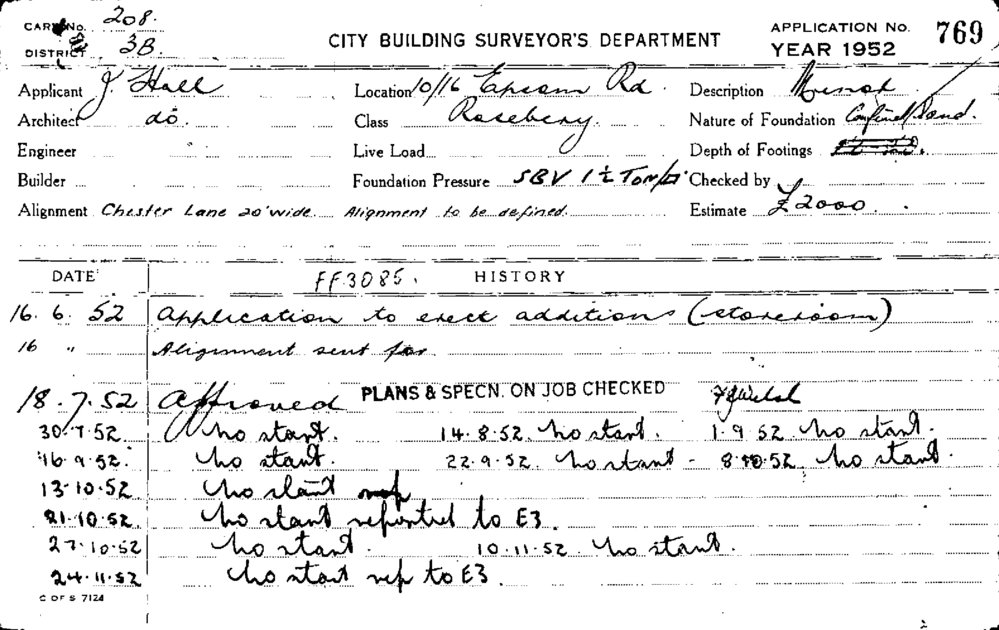 CARD No. 208.
DISTRICT 3B.
CITY BUILDING SURVEYOR'S DEPARTMENT
APPLICATION No. 769
YEAR 1952
Applicant J Hall Location 10/16 Epsom Rd. Description Minor
Architect do. Class Rosebery. Nature of Foundation Confined Sand.
Engineer Live Load Depth of Footings
Builder Foundation Pressure SBV 1½ Ton/□' Checked by
Alignment Chester Lane 20' wide. Alignment to be defined. Estimate £2000.
DATE FF3085. HISTORY
16. 6. 52 Application to erect additions (storeroom)
16 " Alignment sent for
18.7.52 Approved PLANS & SPECN. ON JOB CHECKED
30.7.52. No start. 14.8.52. No start. 1.9.52. No start.
16.9.52. No start. 22.9.52. No start - 8.10.52. No start.
13.10.52 No start
21.10.52. No start reported to E3.
27.10.52 No start. 10.11.52. No start.
24.11.52 No start rep to E3.
C OF S 7124